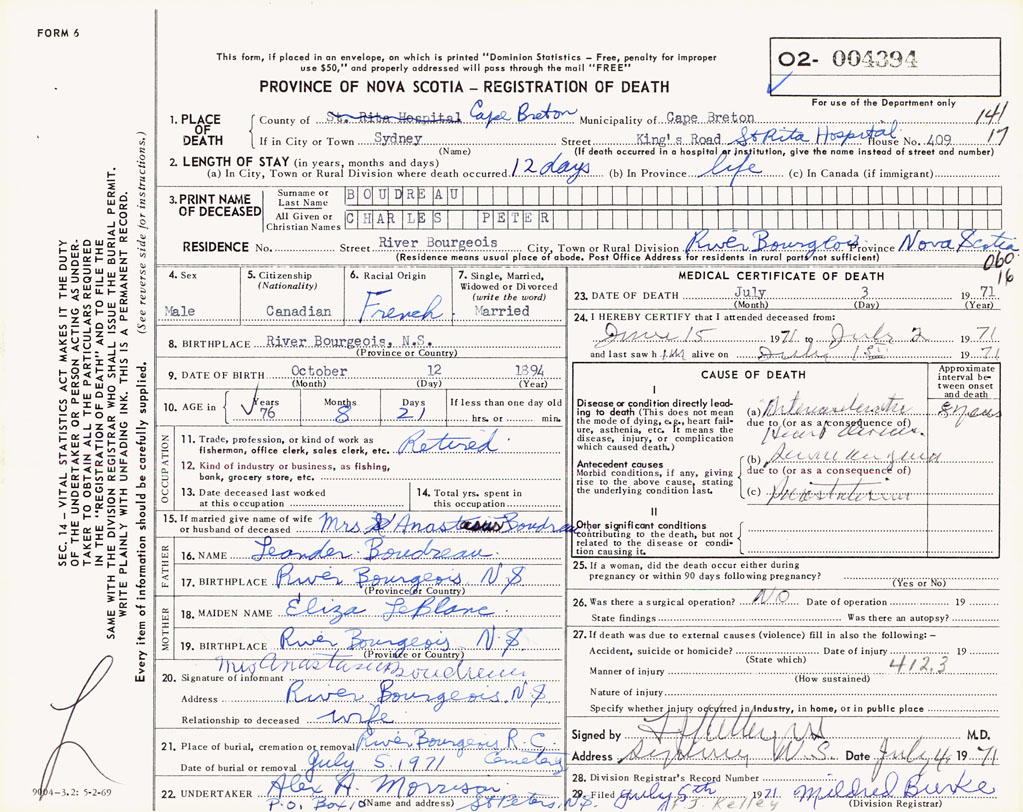 FORM 6
This form, if placed in an envelope, on which is printed "Dominion Statistics – Free, penalty for improper
use $50," and properly addressed will pass through the mail "FREE"
O2- 004394
PROVINCE OF NOVA SCOTIA – REGISTRATION OF DEATH
For use of the Department only
1. PLACE OF DEATH
County of St. Rita Hospital Cape Breton Municipality of Cape Breton 141
If in City or Town Sydney Street King's Road St Rita Hospital House No. 409 17
(Name) (If death occurred in a hospital or institution, give the name instead of street and number)
2. LENGTH OF STAY (in years, months and days)
(a) In City, Town or Rural Division where death occurred 12 days (b) In Province life (c) In Canada (if immigrant)
3. PRINT NAME OF DECEASED
Surname or Last Name BOUDREAU
All Given or Christian Names CHARLES PETER
RESIDENCE No. Street River Bourgeois City, Town or Rural Division River Bourgeois Province Nova Scotia
(Residence means usual place of abode. Post Office Address for residents in rural parts not sufficient)
060
16
SEC. 14 – VITAL STATISTICS ACT MAKES IT THE DUTY
OF THE UNDERTAKER OR PERSON ACTING AS UNDER-
TAKER TO OBTAIN ALL THE PARTICULARS REQUIRED
IN THE "REGISTRATION OF DEATH" AND TO FILE THE
SAME WITH THE DIVISION REGISTRAR WHO SHALL ISSUE THE BURIAL PERMIT.
WRITE PLAINLY WITH UNFADING INK. THIS IS A PERMANENT RECORD.
Every item of information should be carefully supplied. (See reverse side for instructions.)
4. Sex
Male
5. Citizenship
(Nationality)
Canadian
6. Racial Origin
French
7. Single, Married,
Widowed or Divorced
(write the word)
Married
8. BIRTHPLACE River Bourgeois, N.S.
(Province or Country)
9. DATE OF BIRTH October 12 1894
(Month) (Day) (Year)
10. AGE in Years Months Days If less than one day old
76 8 21 hrs. or min.
OCCUPATION
11. Trade, profession, or kind of work as
fisherman, office clerk, sales clerk, etc. Retired
12. Kind of industry or business, as fishing,
bank, grocery store, etc.
13. Date deceased last worked
at this occupation
14. Total yrs. spent in
this occupation
15. If married give name of wife
or husband of deceased Mrs Boudreau
FATHER
16. NAME Leander Boudreau
17. BIRTHPLACE River Bourgeois N S
(Province or Country)
MOTHER
18. MAIDEN NAME Eliza LeBlanc
19. BIRTHPLACE River Bourgeois N.S.
(Province or Country)
20. Signature of informant Mrs Boudreau
Address River Bourgeois N S
Relationship to deceased wife
21. Place of burial, cremation or removal River Bourgeois R. C. Cemetery
Date of burial or removal July 5, 1971
22. UNDERTAKER Alex A. Morrison
P.O. Box 10 (Name and address) St Peters, N.S.
9004-3.2: 5-2-69
MEDICAL CERTIFICATE OF DEATH
23. DATE OF DEATH July 3 1971
(Month) (Day) (Year)
24. I HEREBY CERTIFY that I attended deceased from:
June 15 1971 to July 2 1971
and last saw him alive on July 1971
CAUSE OF DEATH
Approximate
interval be-
tween onset
and death
I
Disease or condition directly lead-
ing to death (This does not mean
the mode of dying, e.g., heart fail-
ure, asthenia, etc. It means the
disease, injury, or complication
which caused death.)
(a)
due to (or as a consequence of)
Heart
Antecedent causes
Morbid conditions, if any, giving
rise to the above cause, stating
the underlying condition last.
(b)
due to (or as a consequence of)
(c)
II
Other significant conditions
contributing to the death, but not
related to the disease or condi-
tion causing it.
25. If a woman, did the death occur either during
pregnancy or within 90 days following pregnancy?
(Yes or No)
26. Was there a surgical operation? NO Date of operation 19
State findings Was there an autopsy?
27. If death was due to external causes (violence) fill in also the following: –
Accident, suicide or homicide? Date of injury 19
(State which) 412.3
Manner of injury
(How sustained)
Nature of injury
Specify whether injury occurred in Industry, in home, or in public place
Signed by M.D.
Address Sydney N.S. Date July 4, 1971
28. Division Registrar's Record Number
29. Filed July 5th 1971 Mildred Burke
J. J. Kelley (Division Registrar)